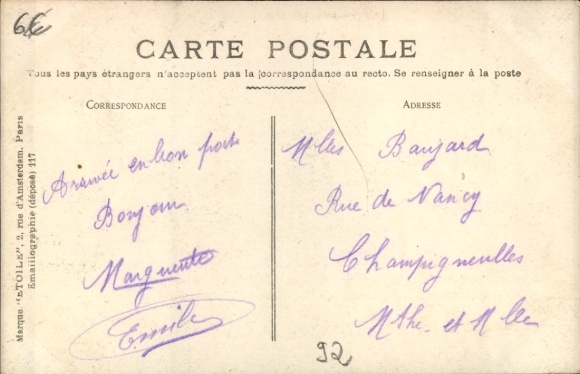 6€
CARTE POSTALE
Tous les pays étrangers n'acceptent pas la correspondance au recto. Se renseigner à la poste
CORRESPONDANCE
Arrivée en bon port
Bonjour
Marguerite
Emile
ADRESSE
Mlles Banjard
Rue de Nancy
Champigneulles
Mthe et Mlle
92
Marque "ETOILE", 2, rue d'Amsterdam, Paris
Emaillographie (déposé) 117